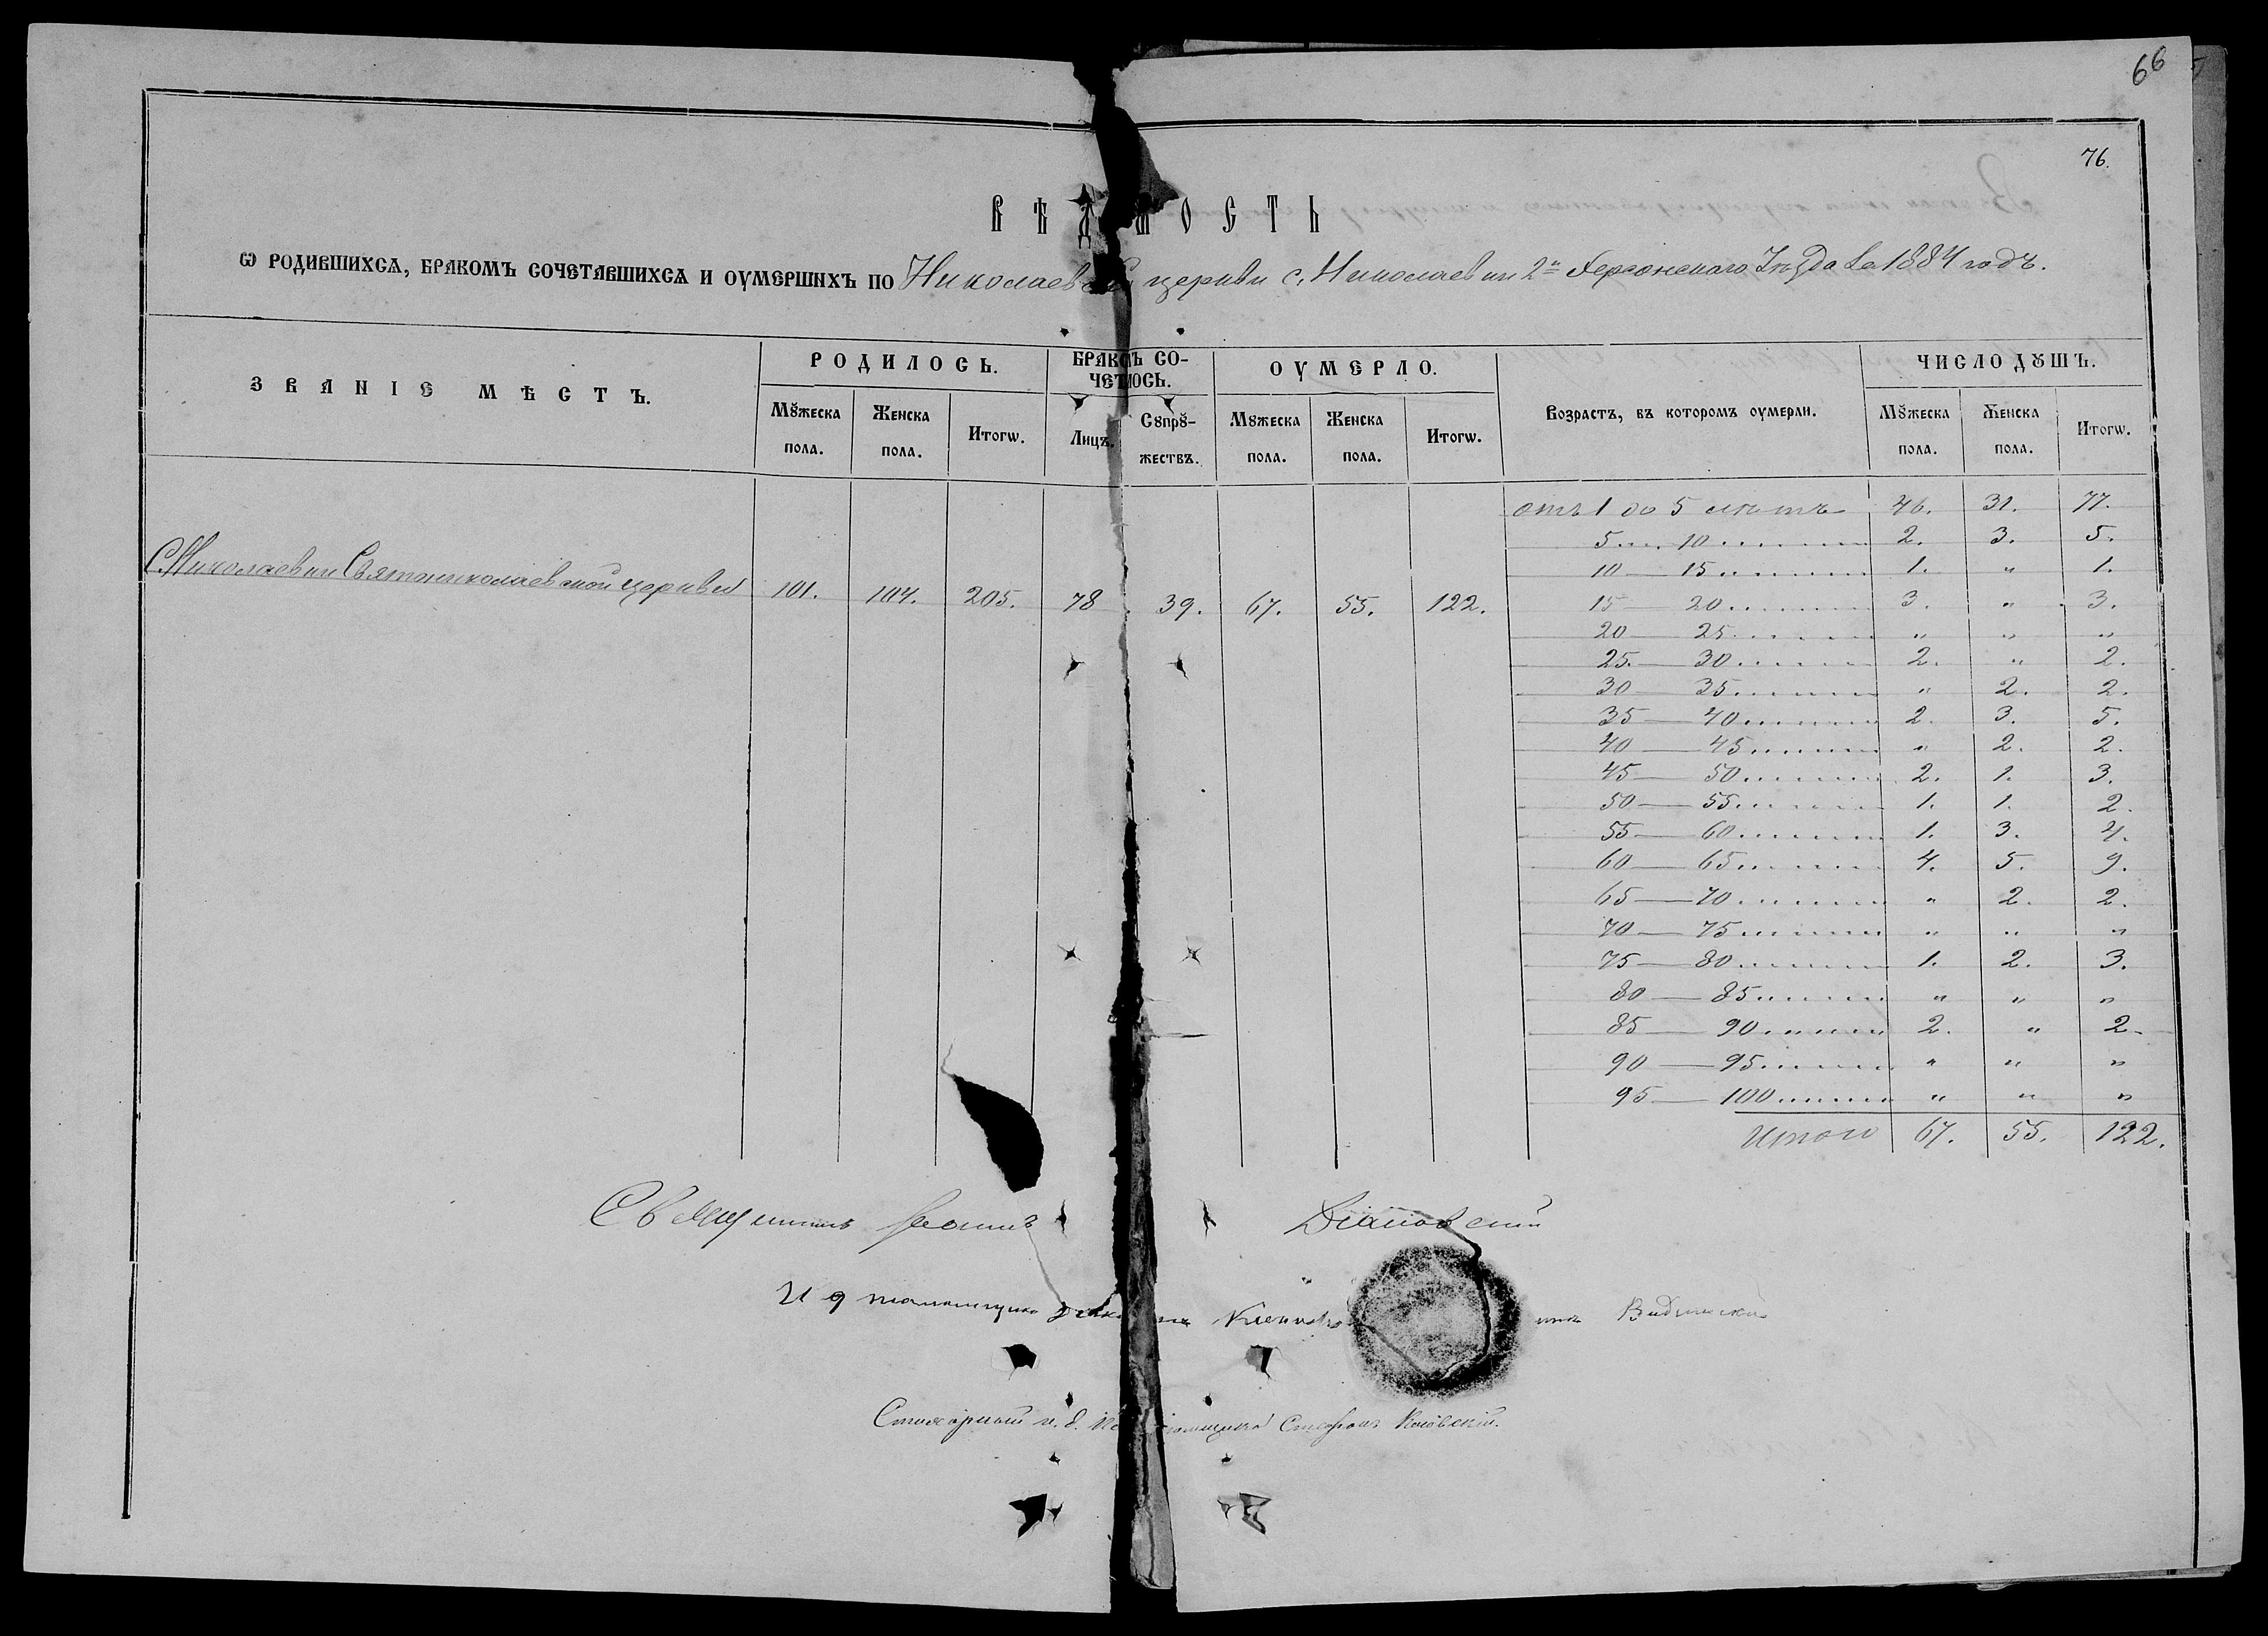 66
76.
ВѢДОМОСТЬ
Ѡ РОДИВШИХСѦ, БРАКОМЪ СОЧЕТАВШИХСѦ И ОУМЕРШИХЪ ПО Николаевской церкви с. Николаевки 2й Херсонскаго Уѣзда за 1884 годъ.
ЗВАНІЕ МѢСТЪ. РОДИЛОСЬ. БРАКОМЪ СОЧЕТАЛОСЬ. ОУМЕРЛО. Возрастъ, въ которомъ оумерли. ЧИСЛО ДꙊШЪ.
Мꙋжеска пола. Женска пола. Итогѡ. Лицъ. Сꙋпрꙋжествъ. Мꙋжеска пола. Женска пола. Итогѡ. Мꙋжеска пола. Женска пола. Итогѡ.
С. Николаевки Святониколаевской церкви 101. 104. 205. 78. 39. 67. 55. 122.
отъ 1 до 5 лѣтъ 46. 31. 77.
5 .... 10 ........ 2. 3. 5.
10 — 15 ........ 1. " 1.
15 — 20 ........ 3. " 3.
20 — 25 ........ " " "
25. — 30 ........ 2. " 2.
30 — 35 ........ " 2. 2.
35 — 40 ........ 2. 3. 5.
40 — 45 ........ " 2. 2.
45 — 50 ........ 2. 1. 3.
50 — 55 ........ 1. 1. 2.
55 — 60 ........ 1. 3. 4.
60 — 65 ........ 4. 5. 9.
65 — 70 ........ " 2. 2.
70 — 75 ........ " " "
75 — 80 ........ 1. 2. 3.
80 — 85 ........ " " "
85 — 90 ........ 2. " 2.
90 — 95 ........ " " "
95 — 100 ........ " " "
Итого 67. 55. 122.
Священникъ Іоаннъ
И д псаломщика
Стихарный и. д. Стефанъ